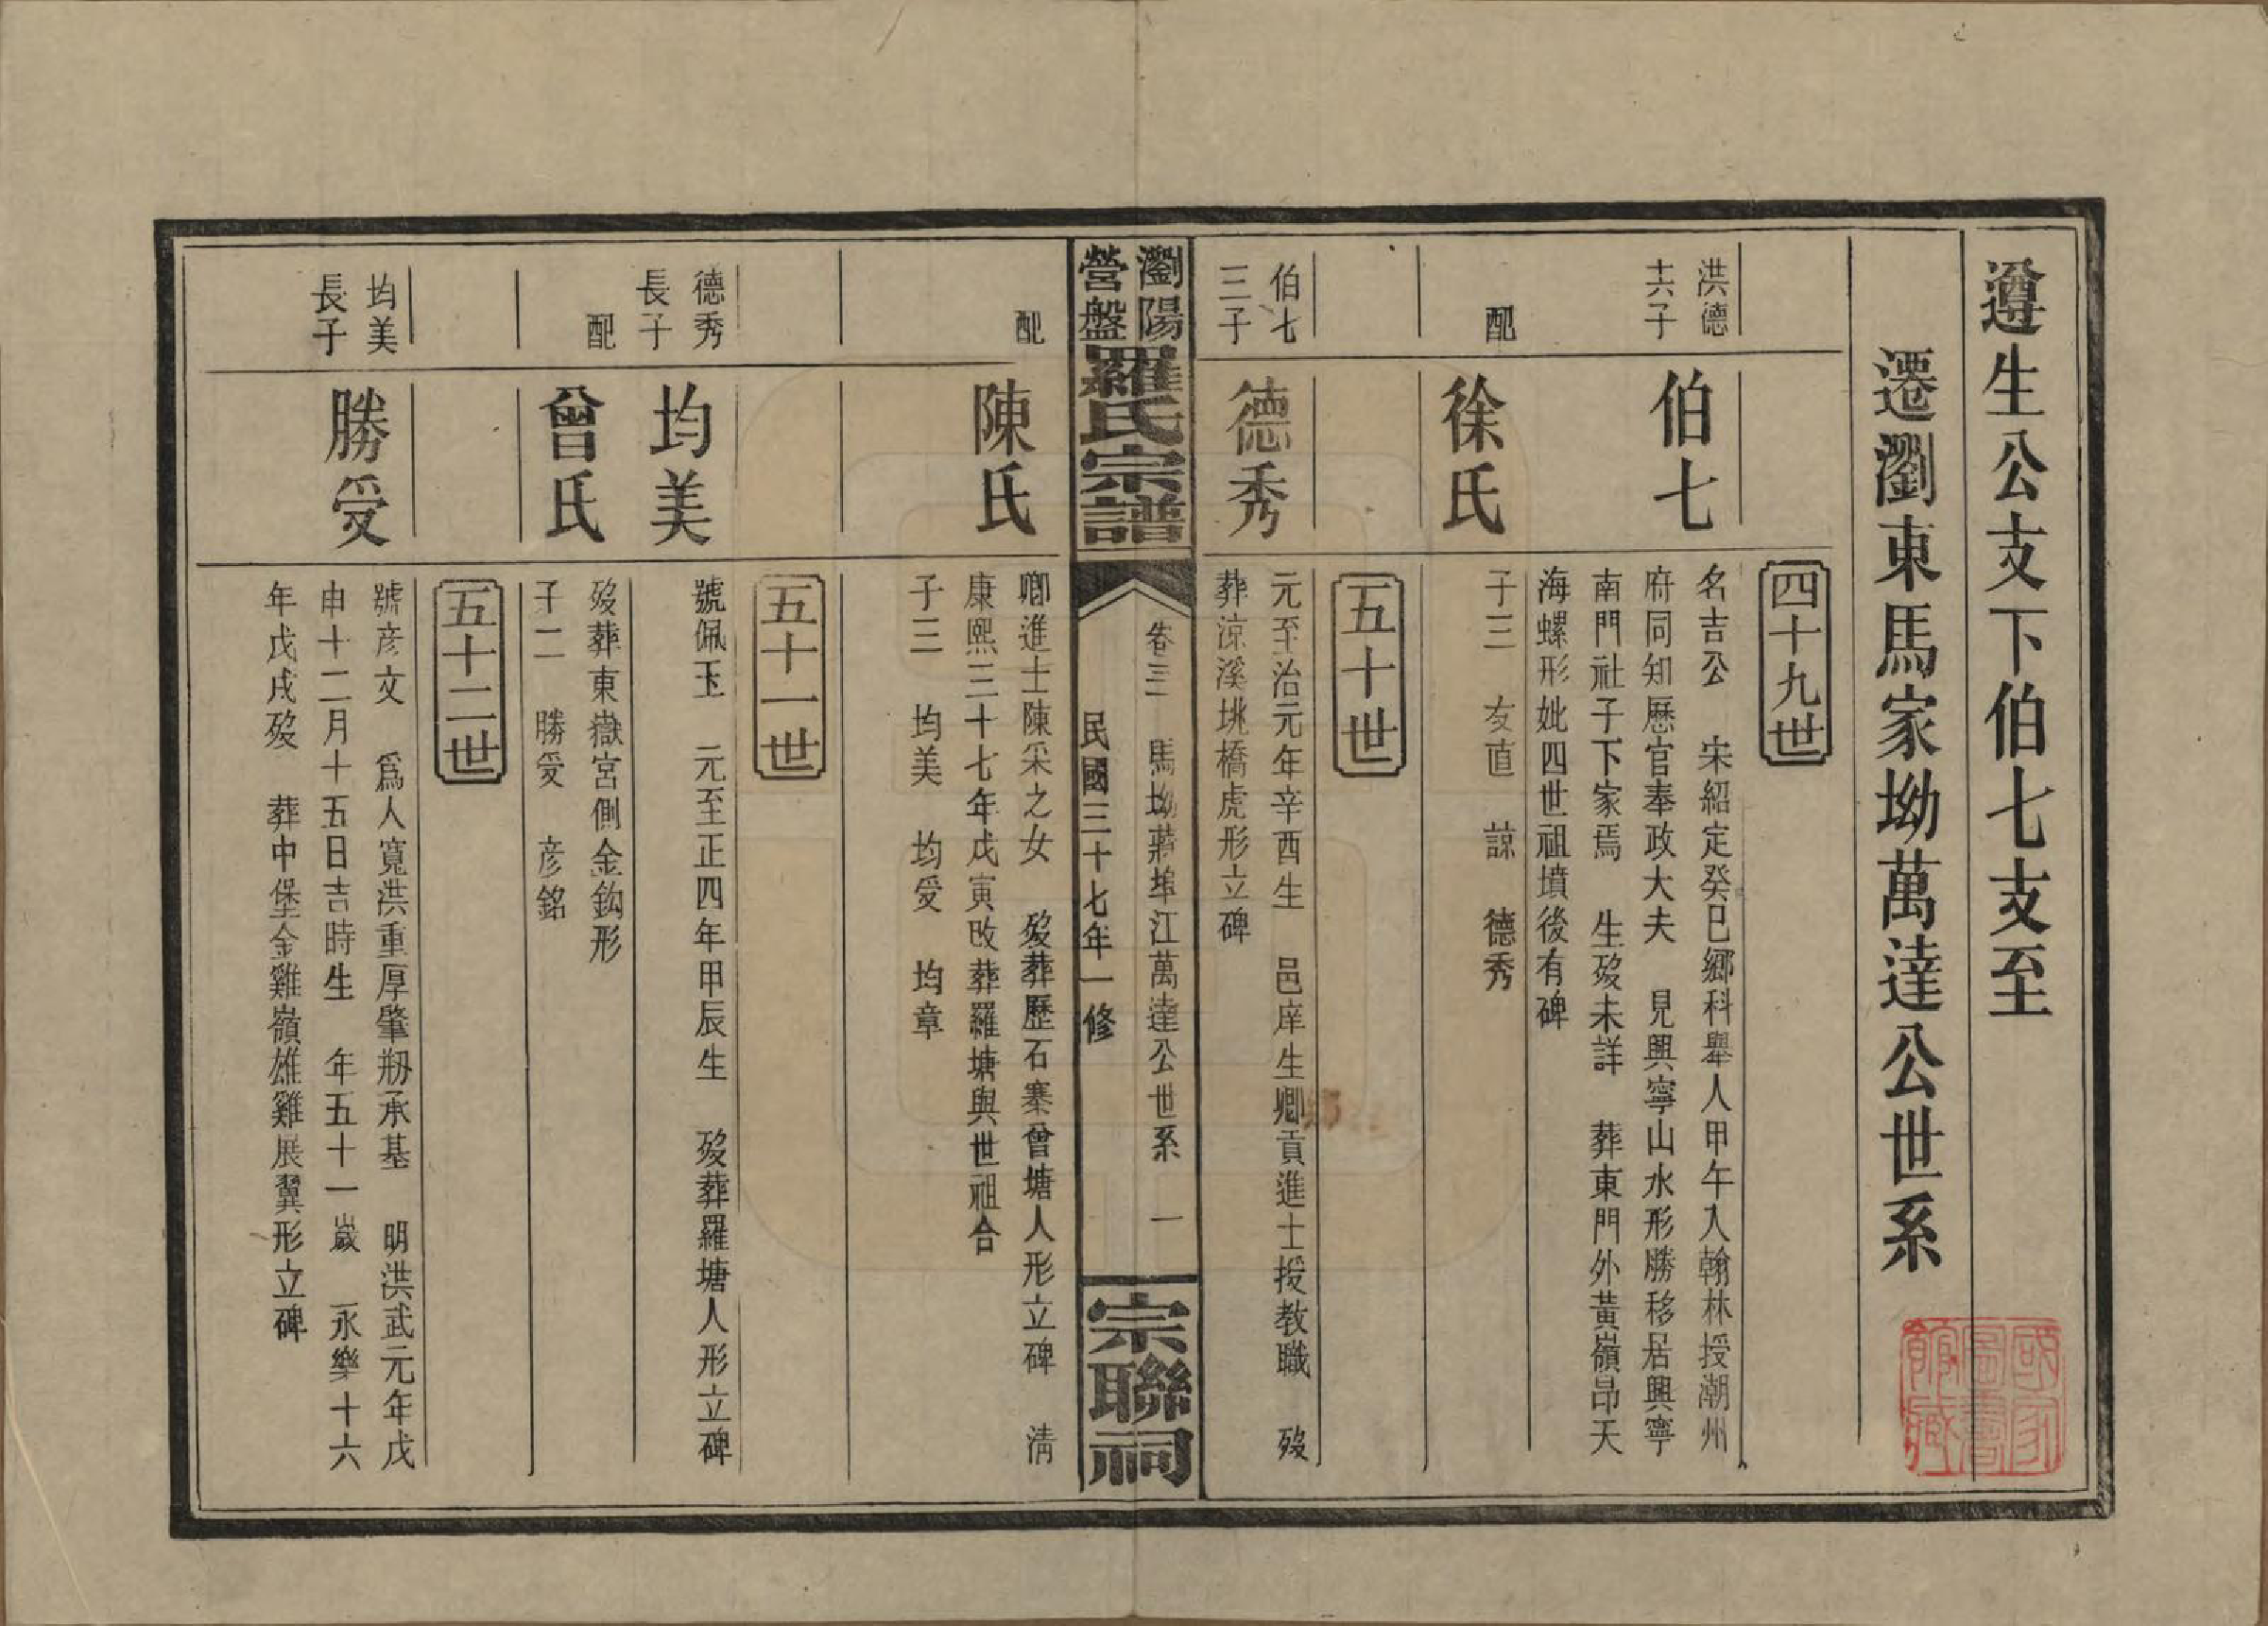 遵生公支下伯七支至
遷瀏東馬家坳萬達公世系
四十九世
洪德
十六子
伯七
名吉公　宋紹定癸巳鄉科舉人甲午入翰林授潮州
府同知歷官奉政大夫　見興寧山水形勝移居興寧
南門社子下家焉　生歿未詳　葬東門外黃嶺昂天
海螺形妣四世祖墳後有碑
配
徐氏
子三　友直　諒　德秀
五十世
伯七
三子
德秀
元至治元年辛酉生　邑庠生鄉貢進士授教職　歿
葬涼溪姚橋虎形立碑
瀏陽
營盤
羅氏宗譜
卷三　馬坳蔣埠江萬達公世系　一
民國三十七年一修
宗聯祠
配
陳氏
鄉進士陳采之女　歿葬歷石寨曾塘人形立碑　清
康熙三十七年戊寅改葬羅塘與世祖合
子三　均美　均受　均章
五十一世
德秀
長子
均美
號佩玉　元至正四年甲辰生　歿葬羅塘人形立碑
配
曾氏
歿葬東嶽宮側金鈎形
子二　勝受　彥銘
五十二世
均美
長子
勝受
號彥文　爲人寬洪重厚肇剏承基　明洪武元年戊
申十二月十五日吉時生　年五十一歲　永樂十六
年戊戌歿　葬中堡金雞嶺雄雞展翼形立碑
國家
圖書
館藏